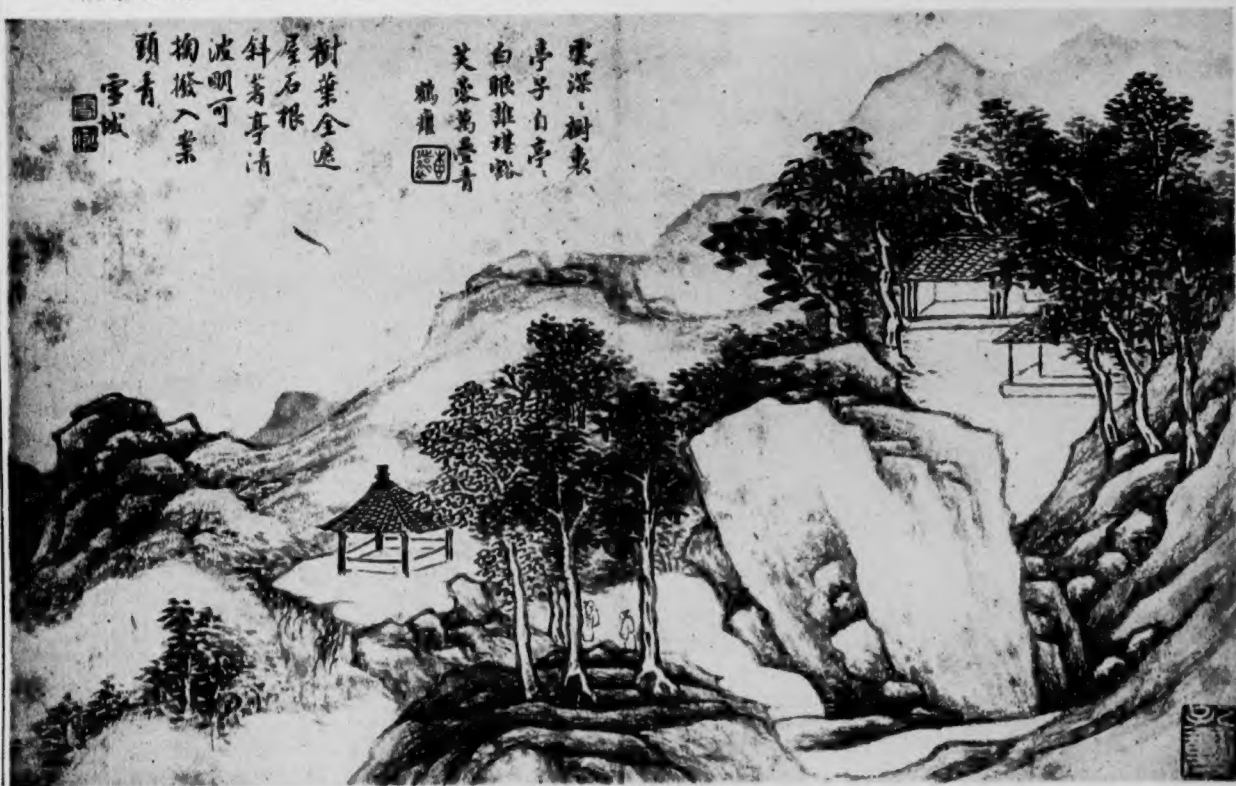 雲深〻樹裏
亭子自亭〻
白眼誰堪豁
芙蓉萬疊青
鶴
樹葉全遮
屋石根
斜著亭清
波明可
掬撥入案
頭青
雪城